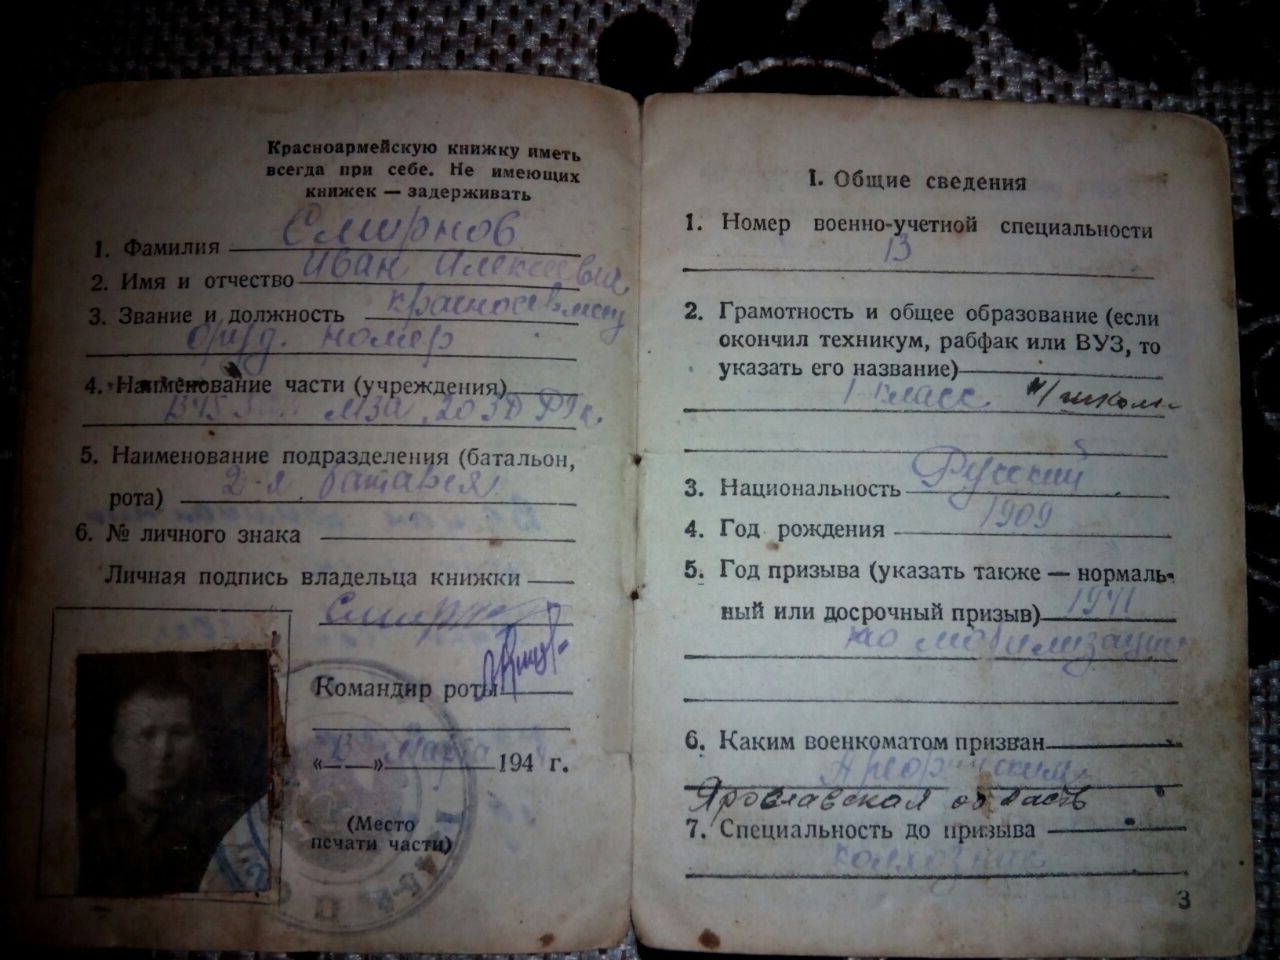 Красноармейскую книжку иметь
всегда при себе. Не имеющих
книжек — задерживать
1. Фамилия Смирнов
2. Имя и отчество Иван Алексеевич
3. Звание и должность красноармеец
оруд. номер
4. Наименование части (учреждения)
МЗА
5. Наименование подразделения (батальон,
рота) 2-я батарея
6. № личного знака
Личная подпись владельца книжки
Командир роты
« » марта 194 г.
(Место
печати части)
I. Общие сведения
1. Номер военно-учетной специальности
13
2. Грамотность и общее образование (если
окончил техникум, рабфак или ВУЗ, то
указать его название)
1 класс н/школы
3. Национальность Русский
4. Год рождения 1909
5. Год призыва (указать также — нормаль-
ный или досрочный призыв) 1941
по мобилизации
6. Каким военкоматом призван
Ярославская область
7. Специальность до призыва
колхозник
3